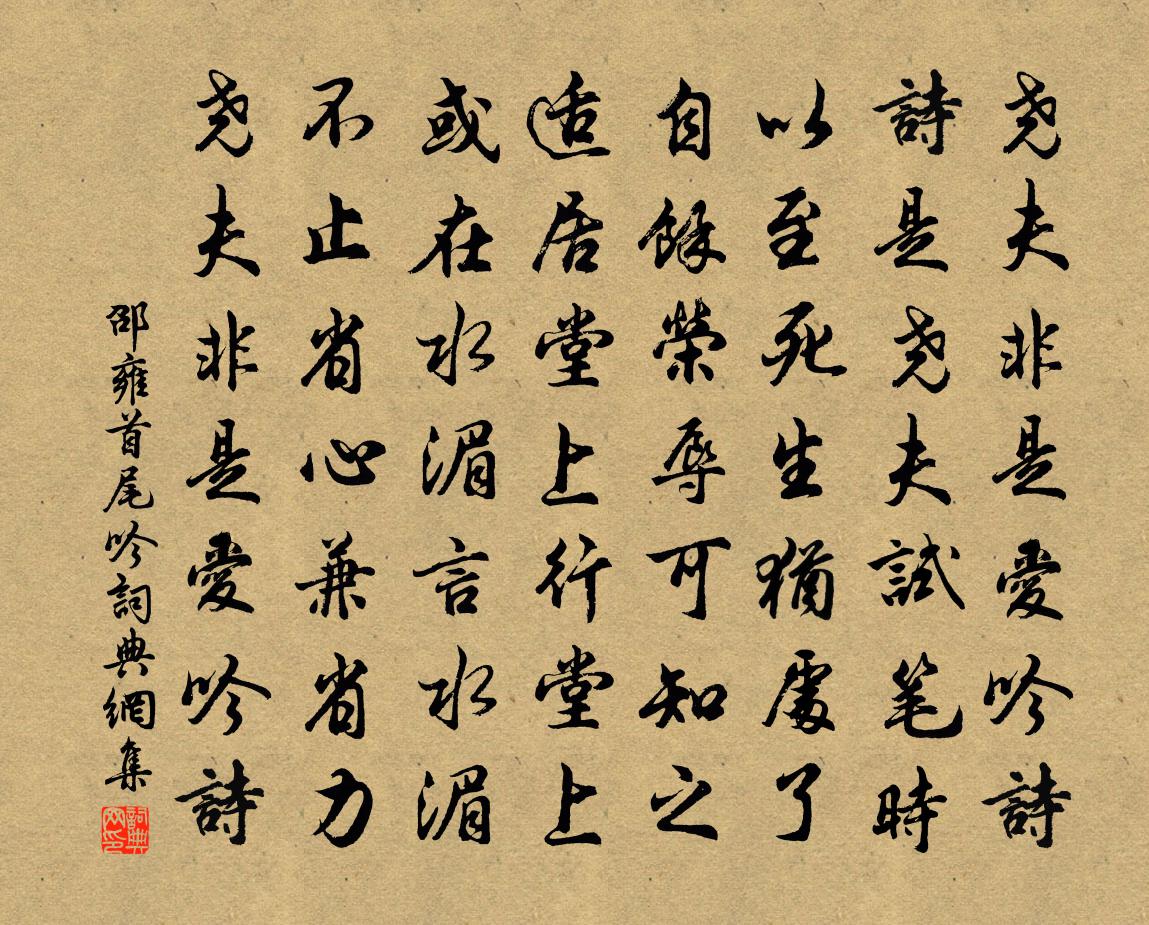 尧夫非是愛吟詩
詩是尧夫試笔時
以至死生猶處了
自餘榮辱可知之
适居堂上行堂上
或在水湄言水湄
不止省心兼省力
尧夫非是愛吟詩
邵雍首尾吟詞典網集
詞典
网印